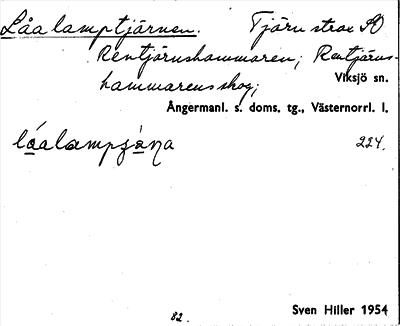 Låalamptjärnen. Tjärn strax SO
Rentjärnshammaren; Rentjärns-
hammarens skog;
Viksjö sn.
Ångermanl. s. doms. tg., Västernorrl. l.
224.
82.
Sven Hiller 1954